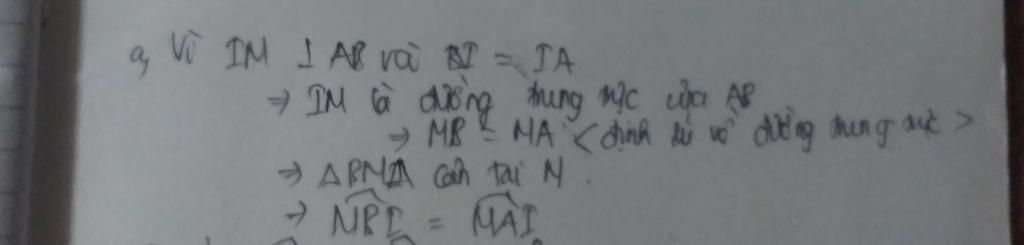 a, Vì IM ⊥ AB và BI = IA
⇒ IM là đường trung trực của AB
⇒ MB = MA < định lí về đường trung trực >
⇒ △BMA cân tại M.
⇒ \widehat{MBI} = \widehat{MAI}